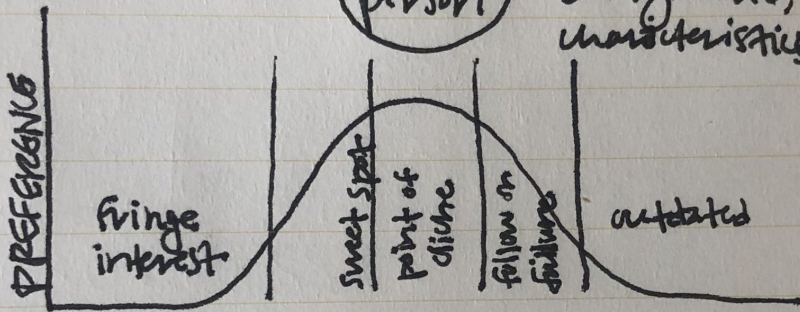 person
characteristics
PREFERENCE
fringe
interest
sweet spot
point of
cliche
follow on
failure
outdated